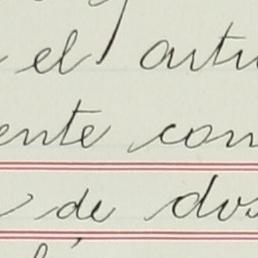 el artu
ente con
de dos